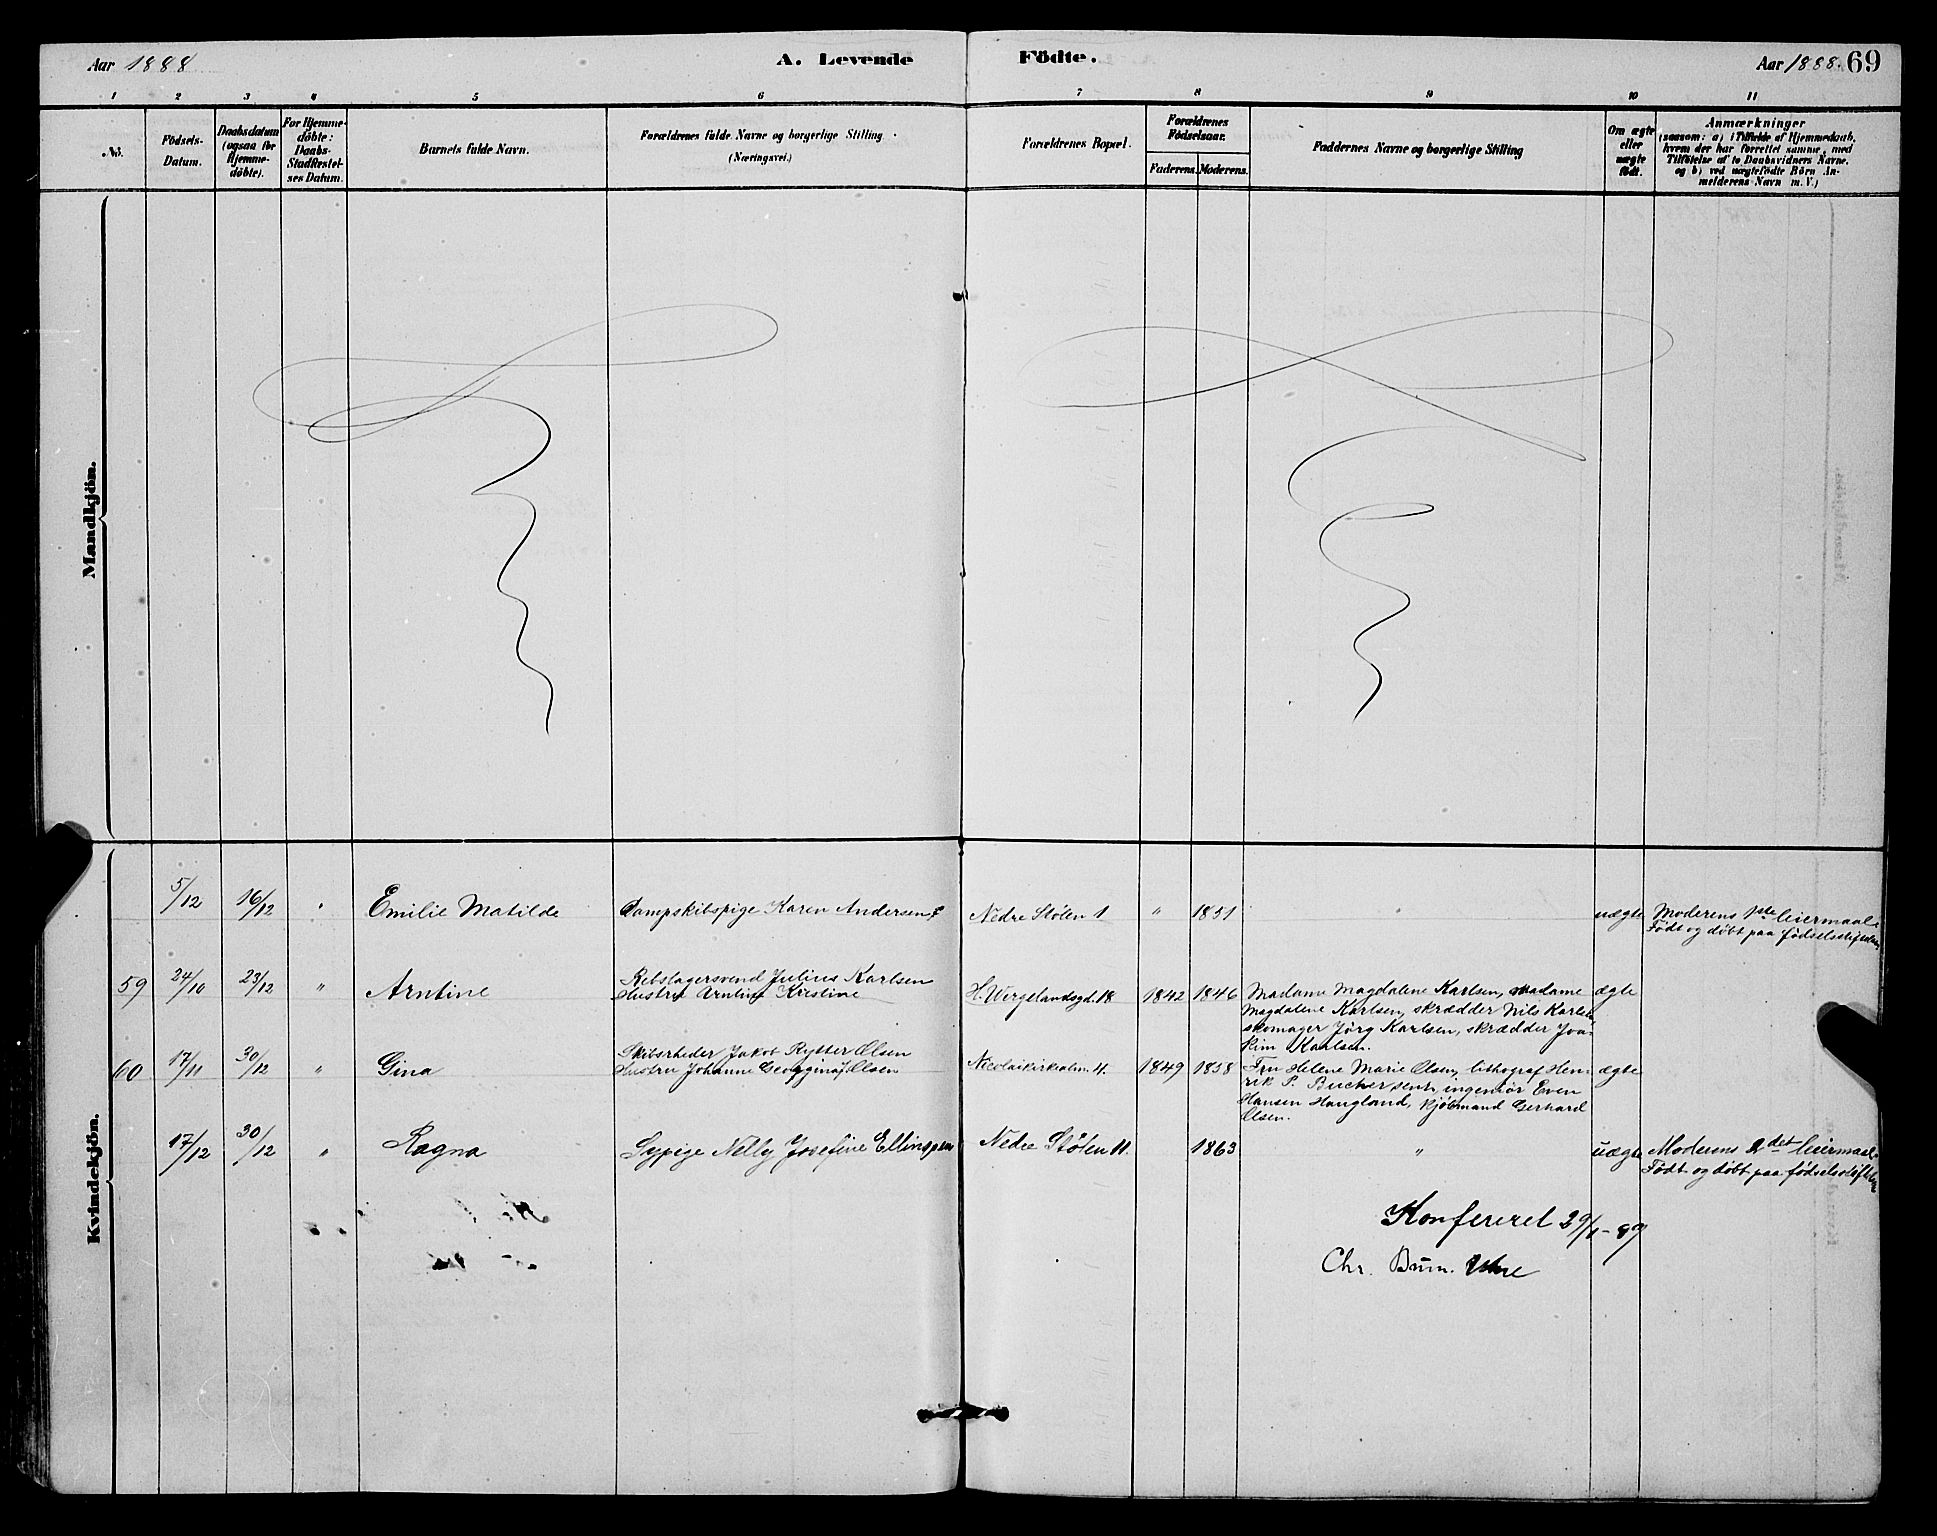 Aar 1888
A. Levende Födte.
Aar 1888. 69
1 2 3 4 5 6 7 8 9 10 11
No.
Födsels-
Datum.
Daabsdatum
(ogsaa for
Hjemme-
döbte).
For Hjemme-
döbte:
Daabs-
Stadfæstel-
ses Datum.
Barnets fulde Navn.
Forældrenes fulde Navne og borgerlige Stilling
(Næringsvei.)
Forældrenes Bopæl.
Forældrenes
Födselsaar.
Faderens. Moderens.
Faddernes Navne og borgerlige Stilling
Om ægte
eller
uægte
födt.
Anmærkninger
(saasom: a) i Tilfælde af Hjemmedaab,
hvem der har forrettet samme, med
Tilföielse af to Daabsvidners Navne.
og b) ved uægtefödte Börn An-
melderens Navn m. V.)
Mandkjön.
Kvindekjön.
5/12 16/12 " Emilie Matilde Dampskibspige Karen Andersen Nedre Stølen 1 " 1851 " uægte Moderens 1ste leiermaal
Født og døbt paa fødselsstiftelsen
59 24/10 23/12 " Arntine Rebslagersvend Julius Karlsen
Hustru Arntine Kristine H. Wergelandsgd. 18 1842 1846 Madame Magdalene Karlsen, Madame ægte
Magdalene Karlsen, skrædder Nils Karlsen
skomager Jørg Karlsen, skrædder Joa-
kim Karlsen.
60 17/11 30/12 " Gina Skibsrheder Jakob Rytter Olsen
Hustru Johanne Georgina J. Olsen Nicolaikirkealm. 4. 1849 1858 Fru Helene Marie Olsen, lithograf Hen- ægte
rik P. Bucher senr, ingeniør Even
Hansen Haugland, kjøbmand Gerhard
Olsen.
17/12 30/12 " Ragna Sypige Nelly Josefine Ellingsen Nedre Stølen 11 1863 " uægte Moderens 2det leiermaal
Født og døbt paa fødselsstiftelsen
Konfereret 29/1-89
Chr. Brun.